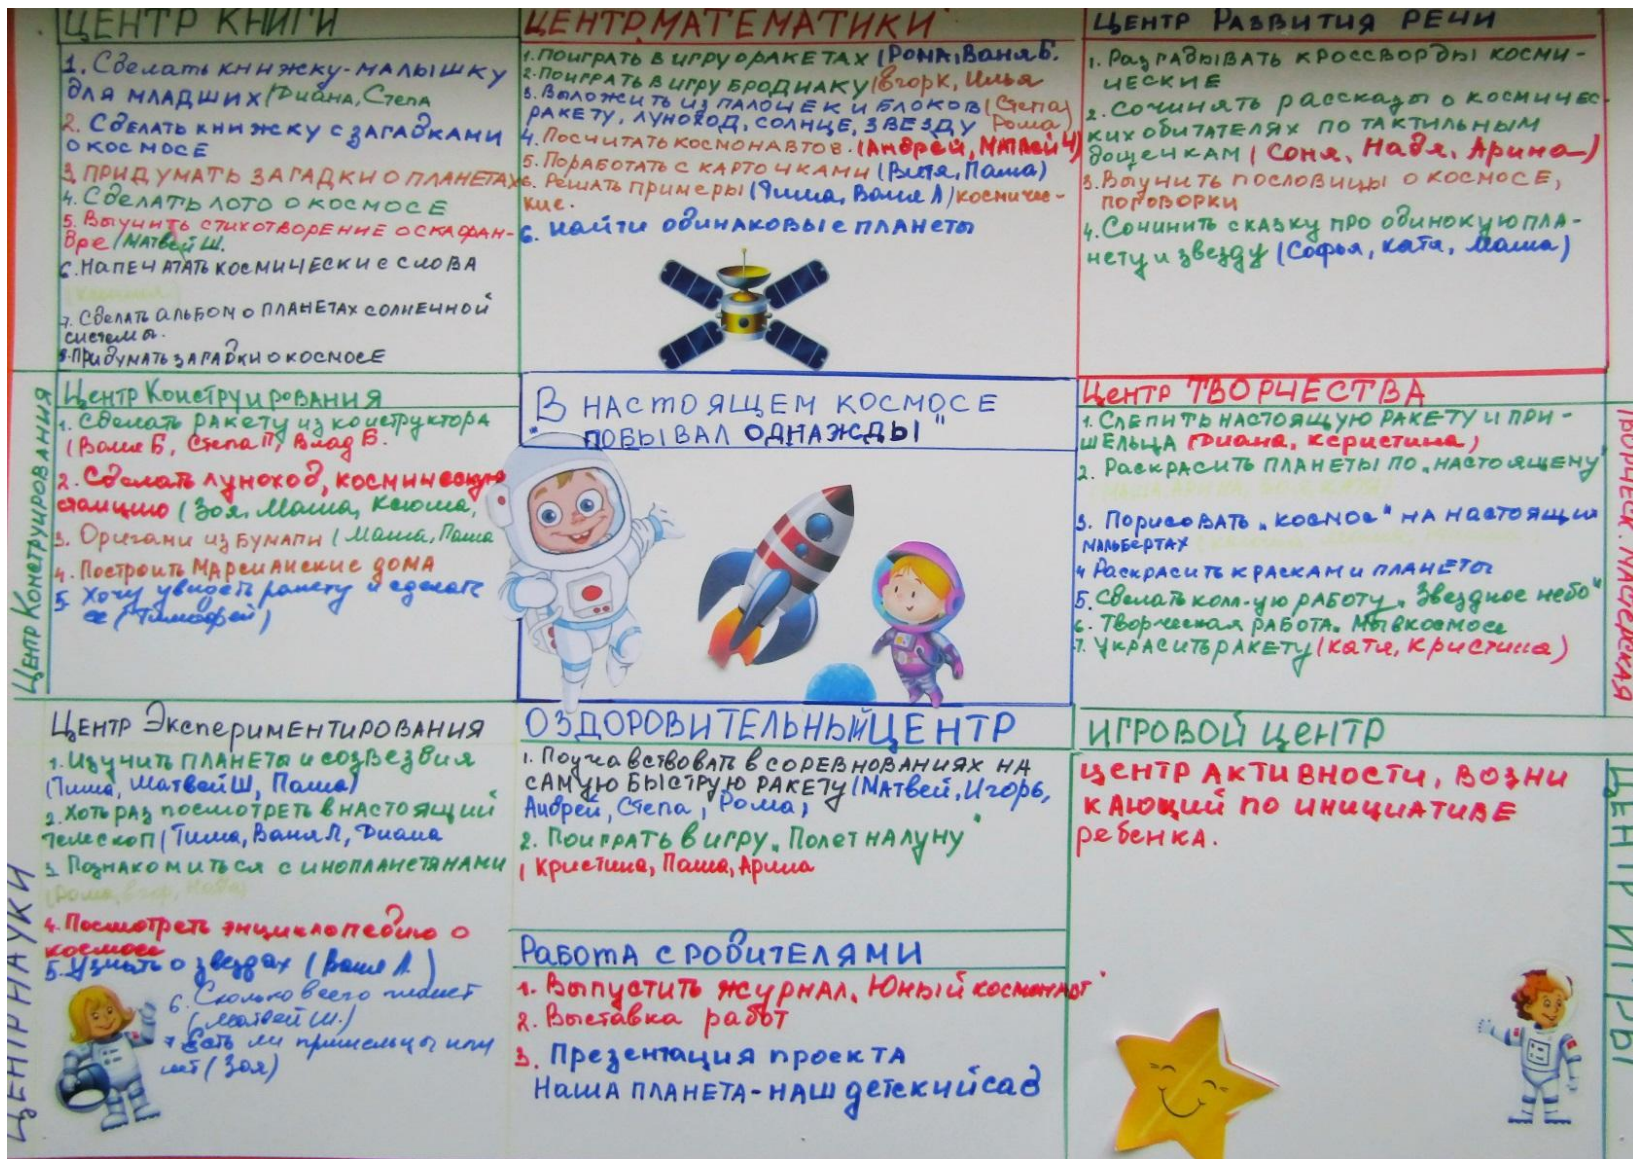 ЦЕНТР КНИГИ
1. Сделать книжку-малышку
для младших (Диана, Степа
2. Сделать книжку с загадками
о космосе
3. Придумать загадки о планетах
4. Сделать лото о космосе
5. Выучить стихотворение о скафан-
дре (Матвей Ш.
6. Напечатать космические слова
7. Сделать альбом о планетах солнечной
системы.
8. Придумать загадки о космосе
ЦЕНТР МАТЕМАТИКИ
1. Поиграть в игру о ракетах (Рома, Ваня Б.
2. Поиграть в игру бродилку (Егорк, Илья
3. Выложить из палочек и блоков (Степа,
ракету, луноход, солнце, звезду Рома)
4. Посчитать космонавтов. (Андрей, Матвей Ч)
5. Поработать с карточками (Витя, Паша)
6. Решать примеры (Тиша, Ваня Л) космичес-
кие.
6. Найти одинаковые планеты
ЦЕНТР РАЗВИТИЯ РЕЧИ
1. Разгадывать кроссворды косми-
ческие
2. Сочинять рассказы о космичес-
ких обитателях по тактильным
дощечкам (Соня, Надя, Арина)
3. Выучить пословицы о космосе,
поговорки
4. Сочинить сказку про одинокую пла-
нету и звезду (Софья, Катя, Маша)
Центр Конструирования
Центр Конструирования
1. Сделать ракету из конструктора
(Ваня Б, Степа П, Влад Б.
2. Сделать луноход, космическую
станцию (Зоя, Маша, Ксюша,
3. Оригами из бумаги (Маша, Паша
4. Построить Марсианские дома
5. Хочу увидеть ракету и сделать
ее (Тимофей)
В НАСТОЯЩЕМ КОСМОСЕ
"ПОБЫВАЛ ОДНАЖДЫ"
Центр ТВОРЧЕСТВА
1. Слепить настоящую ракету и при-
шельца (Диана, Керистина)
2. Раскрасить планеты по „настоящему"
3. Порисовать „космос" на настоящих
мальбертах
4 Раскрасить красками планеты
5. Сделать колл-ую работу „Звездное небо"
6. Творческая работа „Мы в космосе
7. Украсить ракету (Катя, Кристина)
ТВОРЧЕСК. МАСТЕРСКАЯ
Центр Экспериментирования
1. Изучить планеты и созвездия
(Тиша, Матвей Ш, Паша)
2. Хоть раз посмотреть в настоящий
телескоп (Тима, Ваня Л, Диана
3. Познакомиться с инопланетянами
4. Посмотреть энциклопедию о
космосе
5. Узнать о звездах (Ваня Л.)
6. Сколько всего планет
(Матвей Ш.)
7. Есть ли пришельцы или
нет (Зоя)
ЦЕНТР НАУКИ
ОЗДОРОВИТЕЛЬНЫЙ ЦЕНТР
1. Поучавствовать в соревнованиях на
самую быструю ракету (Матвей, Игорь,
Андрей, Степа, Рома,
2. Поиграть в игру „Полет на луну"
(Кристина, Паша, Арина
Работа с родителями
1. Выпустить журнал „Юный космонавт"
2. Выставка работ
3. Презентация проекта
Наша планета - наш детский сад
ИГРОВОЙ ЦЕНТР
Центр активности, возни
кающий по инициативе
ребенка.
ЦЕНТР ИГРЫ